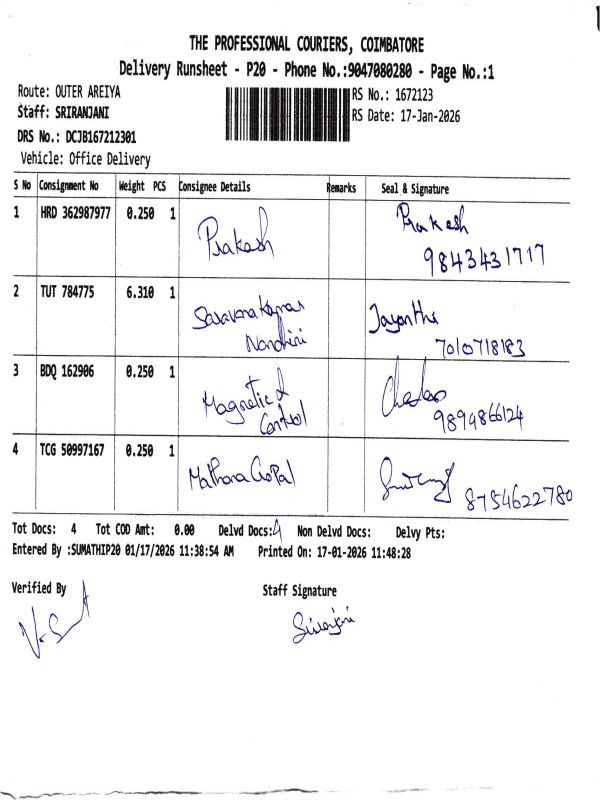 THE PROFESSIONAL COURIERS, COIMBATORE
Delivery Runsheet - P20 - Phone No.:9047080280 - Page No.:1
Route: OUTER AREIYA
Staff: SRIRANJANI
DRS No.: DCJB167212301
Vehicle: Office Delivery
RS No.: 1672123
RS Date: 17-Jan-2026
S No Consignment No Weight PCS Consignee Details Remarks Seal & Signature
1 HRD 362987977 0.250 1 Prakash Prakash
9843431717
2 TUT 784775 6.310 1 Saravana Kumar Jayanthi
Nandhini 7010718183
3 BDQ 162906 0.250 1 Magnetic &
Control 9894866124
4 TCG 50997167 0.250 1 Mathana Gopal
8754622780
Tot Docs: 4 Tot COD Amt: 0.00 Delvd Docs: 4 Non Delvd Docs: Delvy Pts:
Entered By :SUMATHIP20 01/17/2026 11:38:54 AM Printed On: 17-01-2026 11:48:28
Verified By Staff Signature